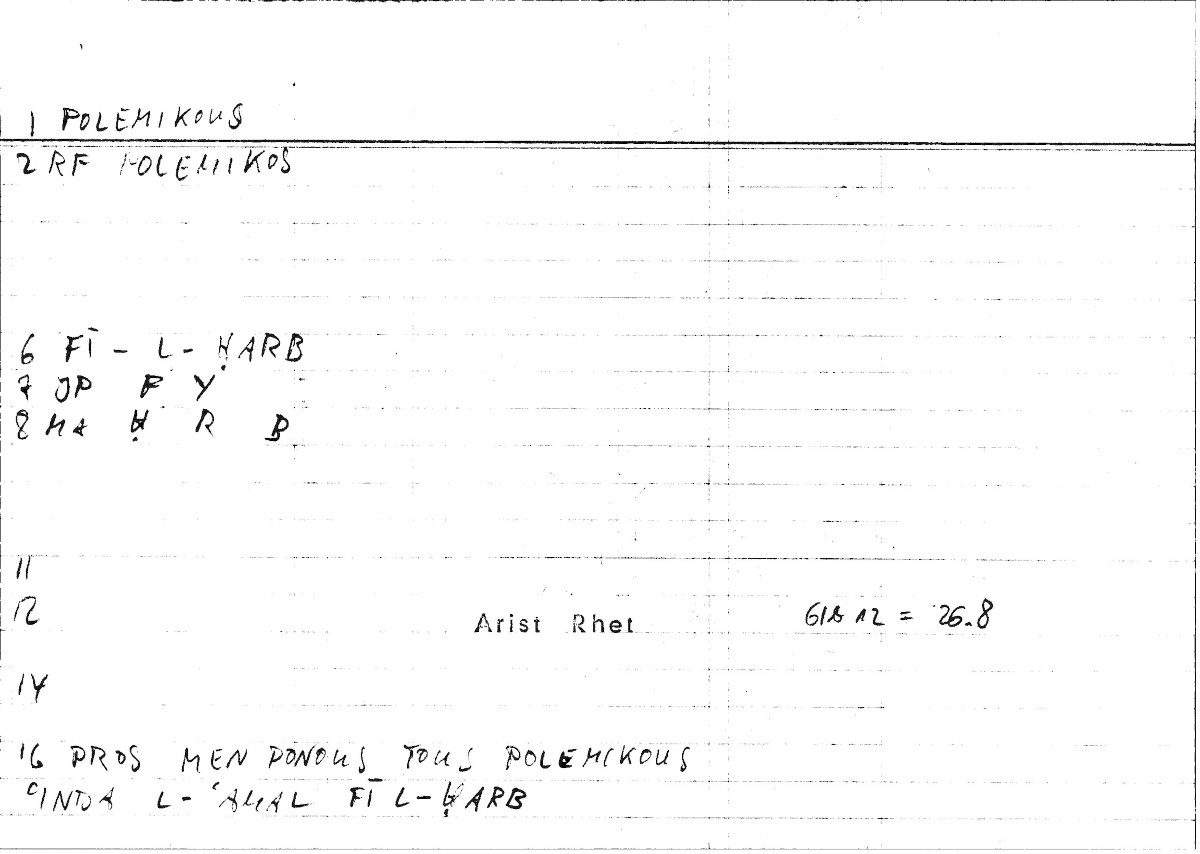 1 POLEMIKOUS
2 RF POLEMIKOS
6 FĪ - L - ḤARB
7 JP F Y
8 MA Ḥ R B
11
12 Arist Rhet 61b12 = 26.8
14
16 PROS MEN PONOUS TOUS POLEMIKOUS
ʿINDA L-ʿAMAL FĪ L-ḤARB